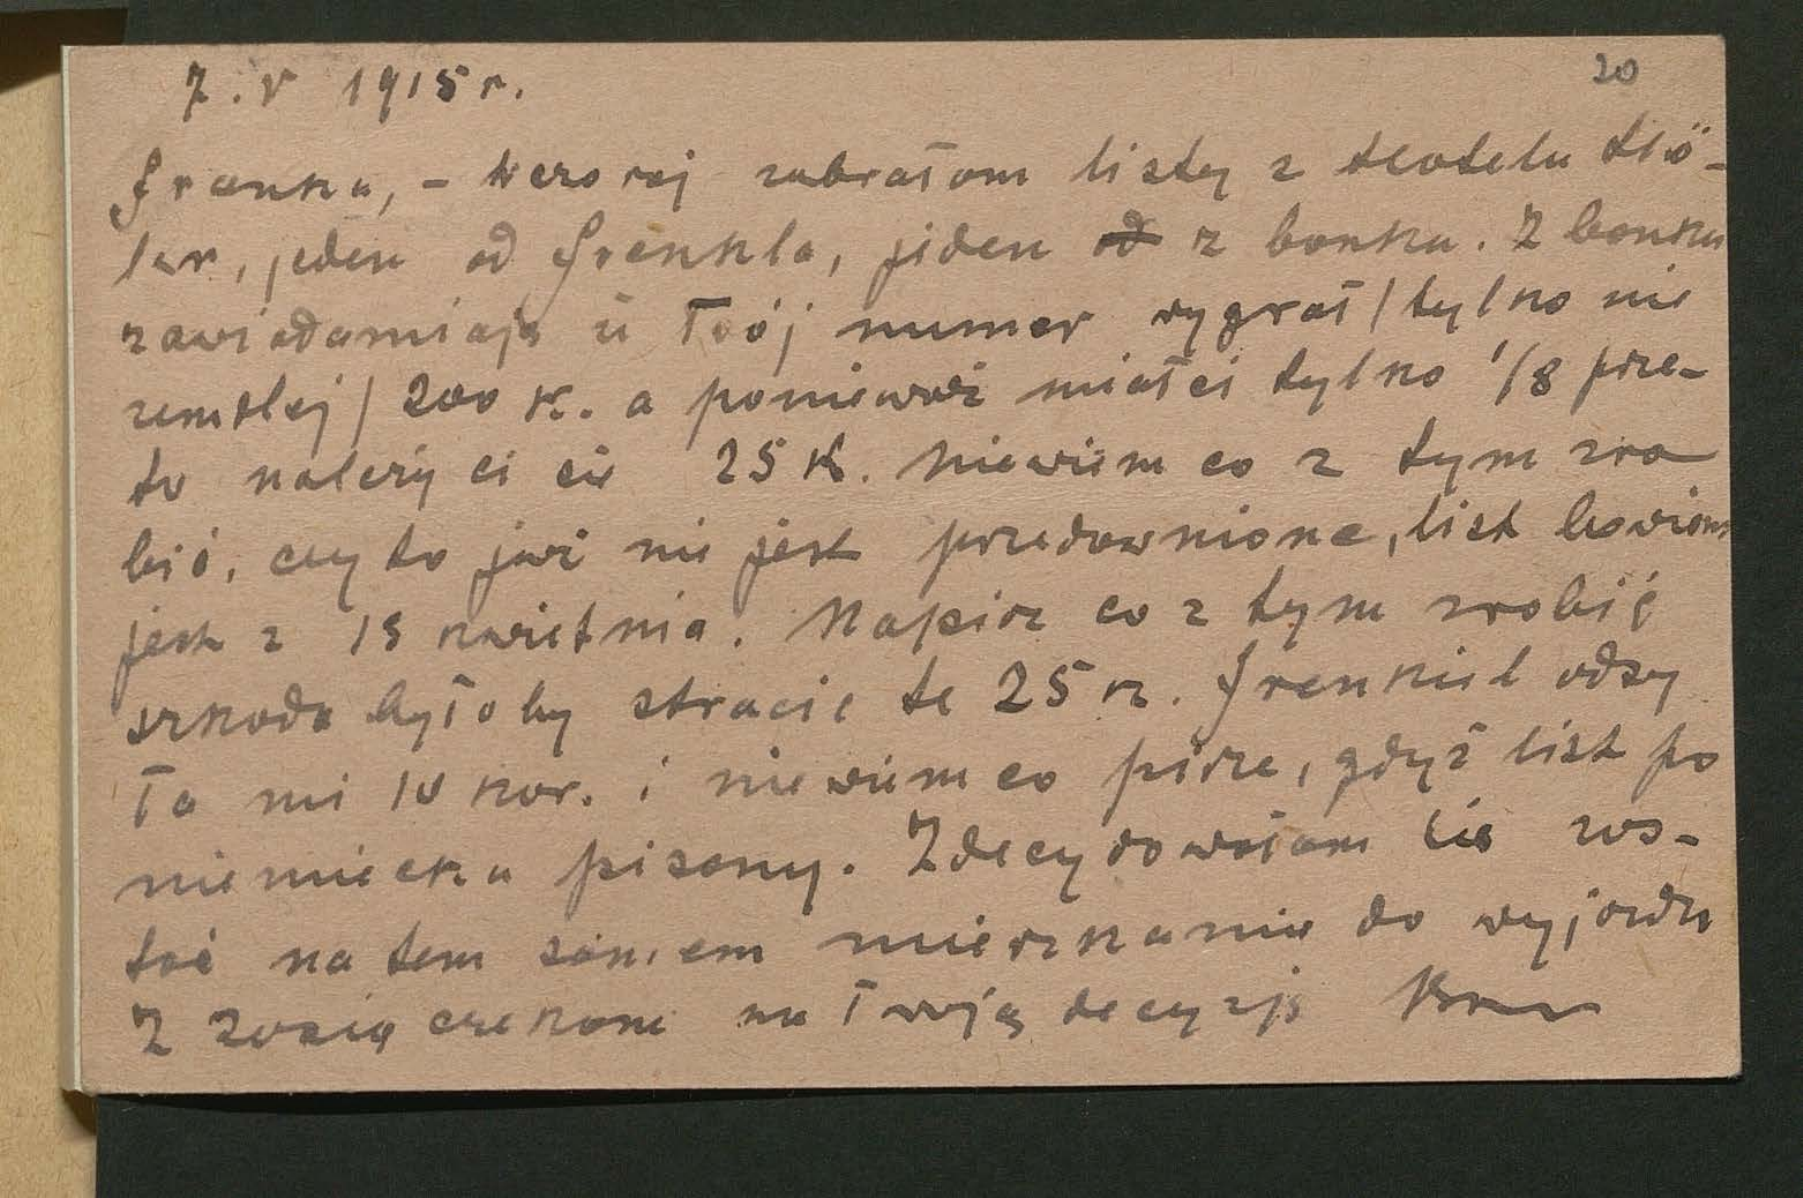 7. V 1915 r.
20
Franku, – wczoraj zabrałam listy z Hotelu Hö-
ler, jeden od Frenkla, jeden od z banku. Z banku
zawiadamiają iż Twój numer wygrał / tylko nie
/ 200 K. a ponieważ miałeś tylko 1/8 prze-
to należy ci się 25 K. Niewiem co z tym zro
bić, czy to już nie jest przedawnione, list bowiem
jest z 15 kwietnia. Napisz co z tym zrobić
szkoda byłoby stracić te 25 K. Frenkiel odsy
ła mi 10 kor. i nie wiem co pisze, gdyż list po
niemiecku pisany. Zdecydowałam się zos-
tać na tem samem mieszkaniu do wyjazdu
Z Zosią czekam na Twoją decyzję